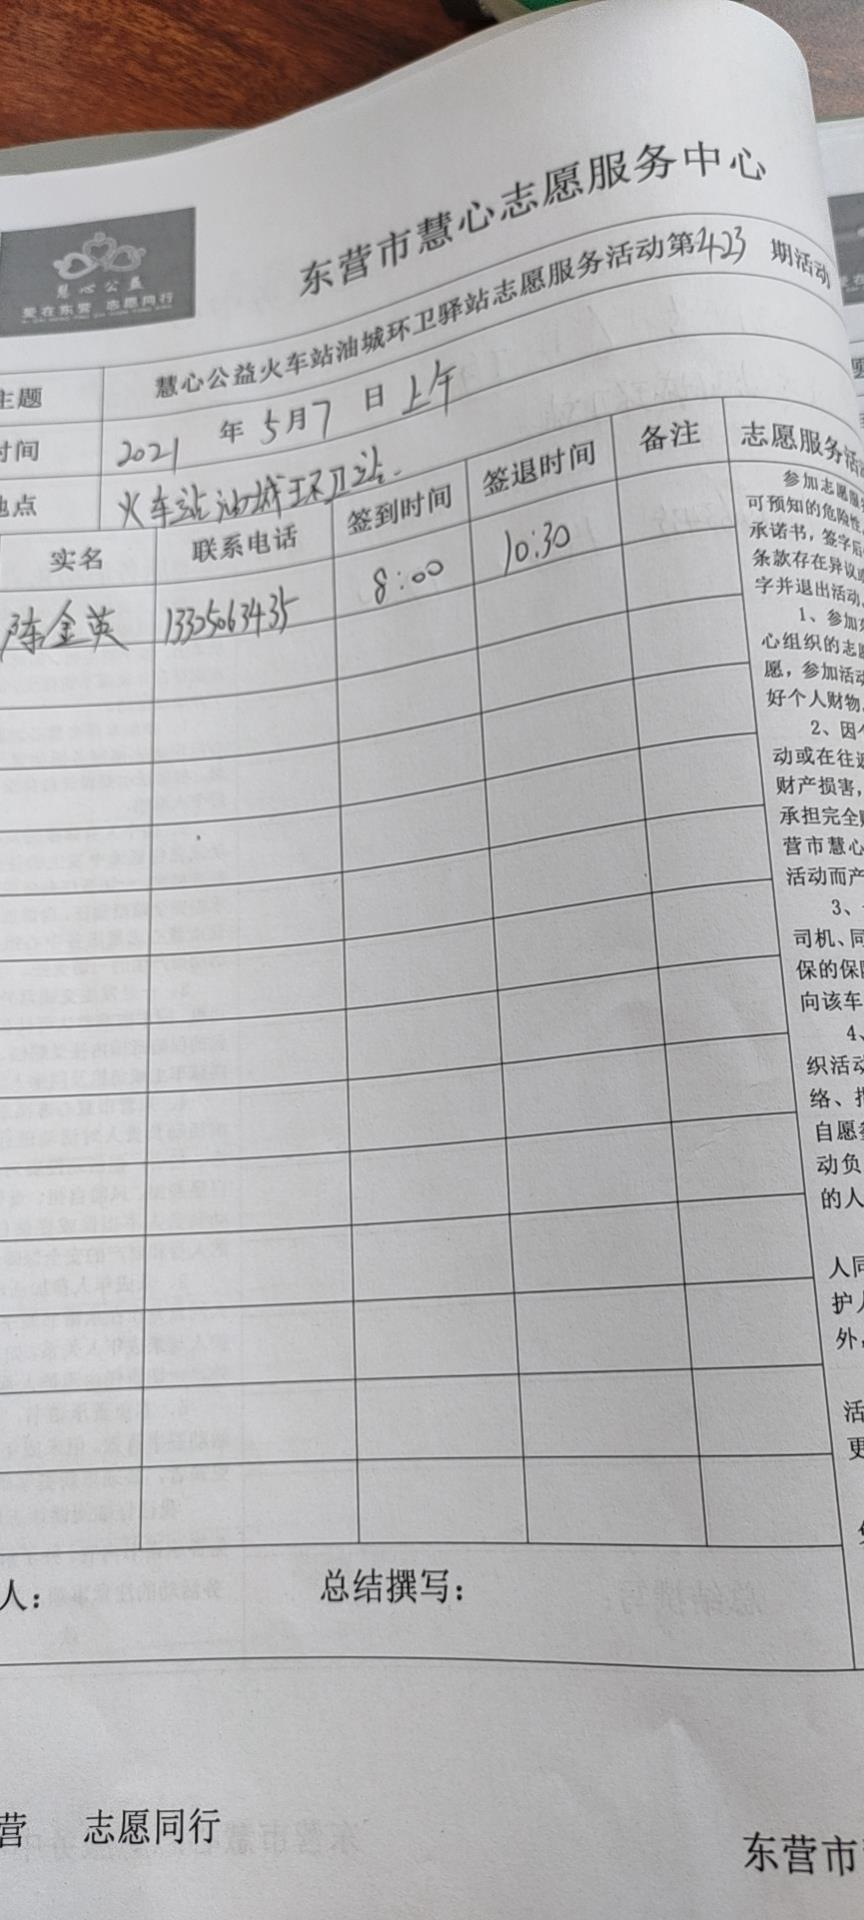 东营市慧心志愿服务中心
慧心公益
爱在东营 志愿同行
主题 慧心公益火车站油城环卫驿站志愿服务活动第423期活动
时间 2021年5月7日上午
地点 火车站油城环卫站.
实名 联系电话 签到时间 签退时间 备注
陈金英 8:00 10:30
志愿服务活
参加志愿服
可预知的危险性
承诺书，签字后
条款存在异议或
字并退出活动
1、参加
心组织的志愿
愿，参加活动
好个人财物
2、因个
动或在往返
财产损害，
承担完全
营市慧心
活动而产
3、
司机、同
保的保
向该车
4、
织活动
络、指
自愿参
动负
的人
人同
护人
外，
活
更
人： 总结撰写：
营 志愿同行
东营市